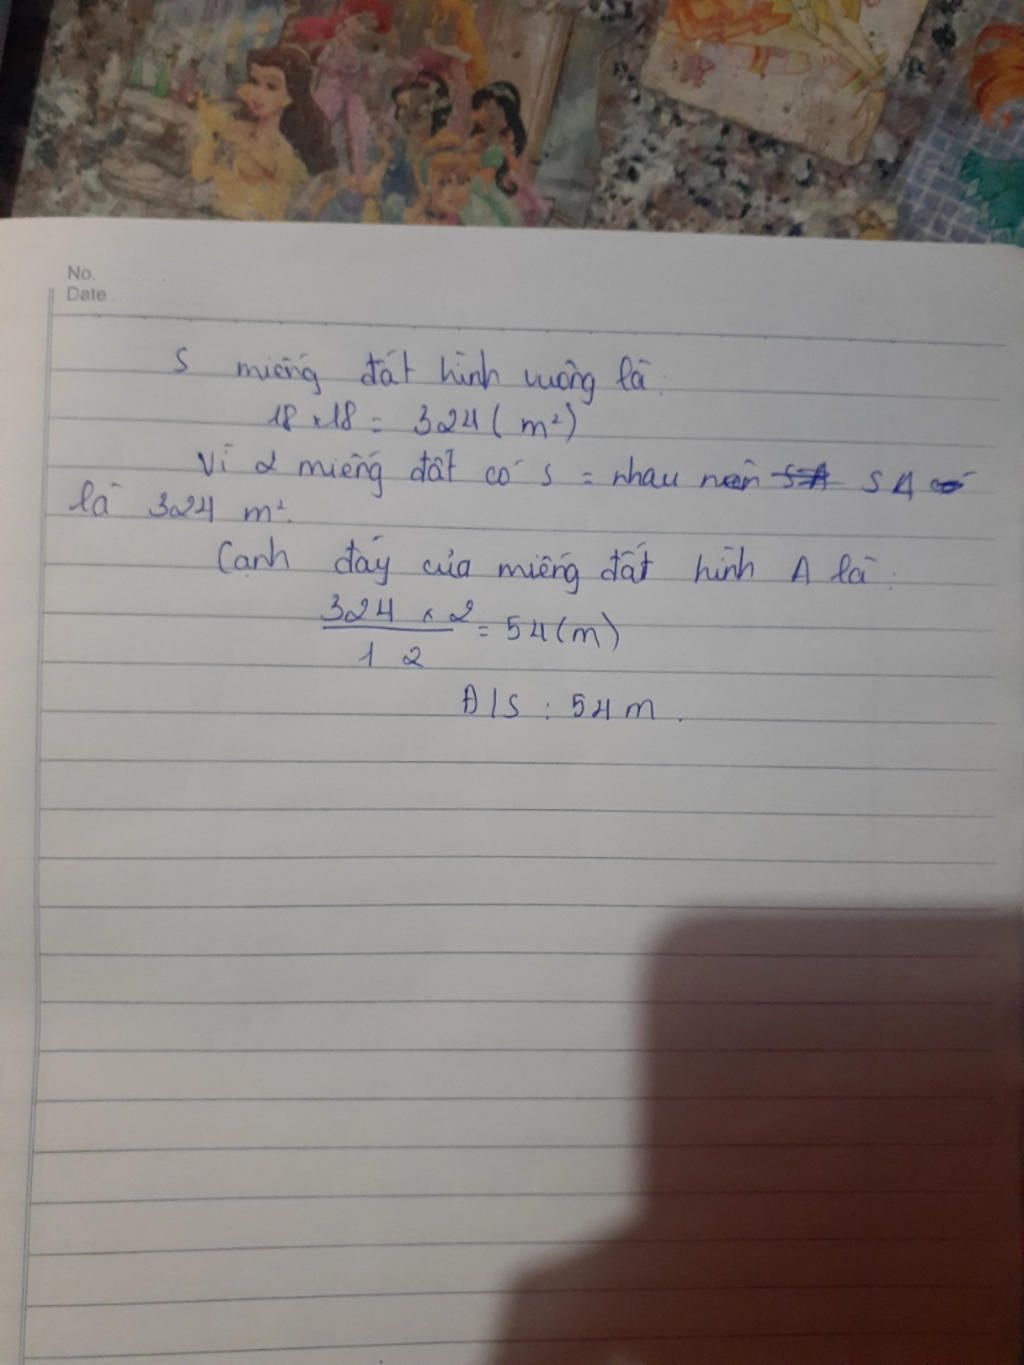 No.
Date
S miếng đất hình vuông là:
18 x 18 = 324 ( m²)
Vì 2 miếng đất có S = nhau nên S Δ
là 324 m².
Cạnh đáy của miếng đất hình Δ là:
324 x 2
= 54 (m)
12
Đ/S : 54 m.